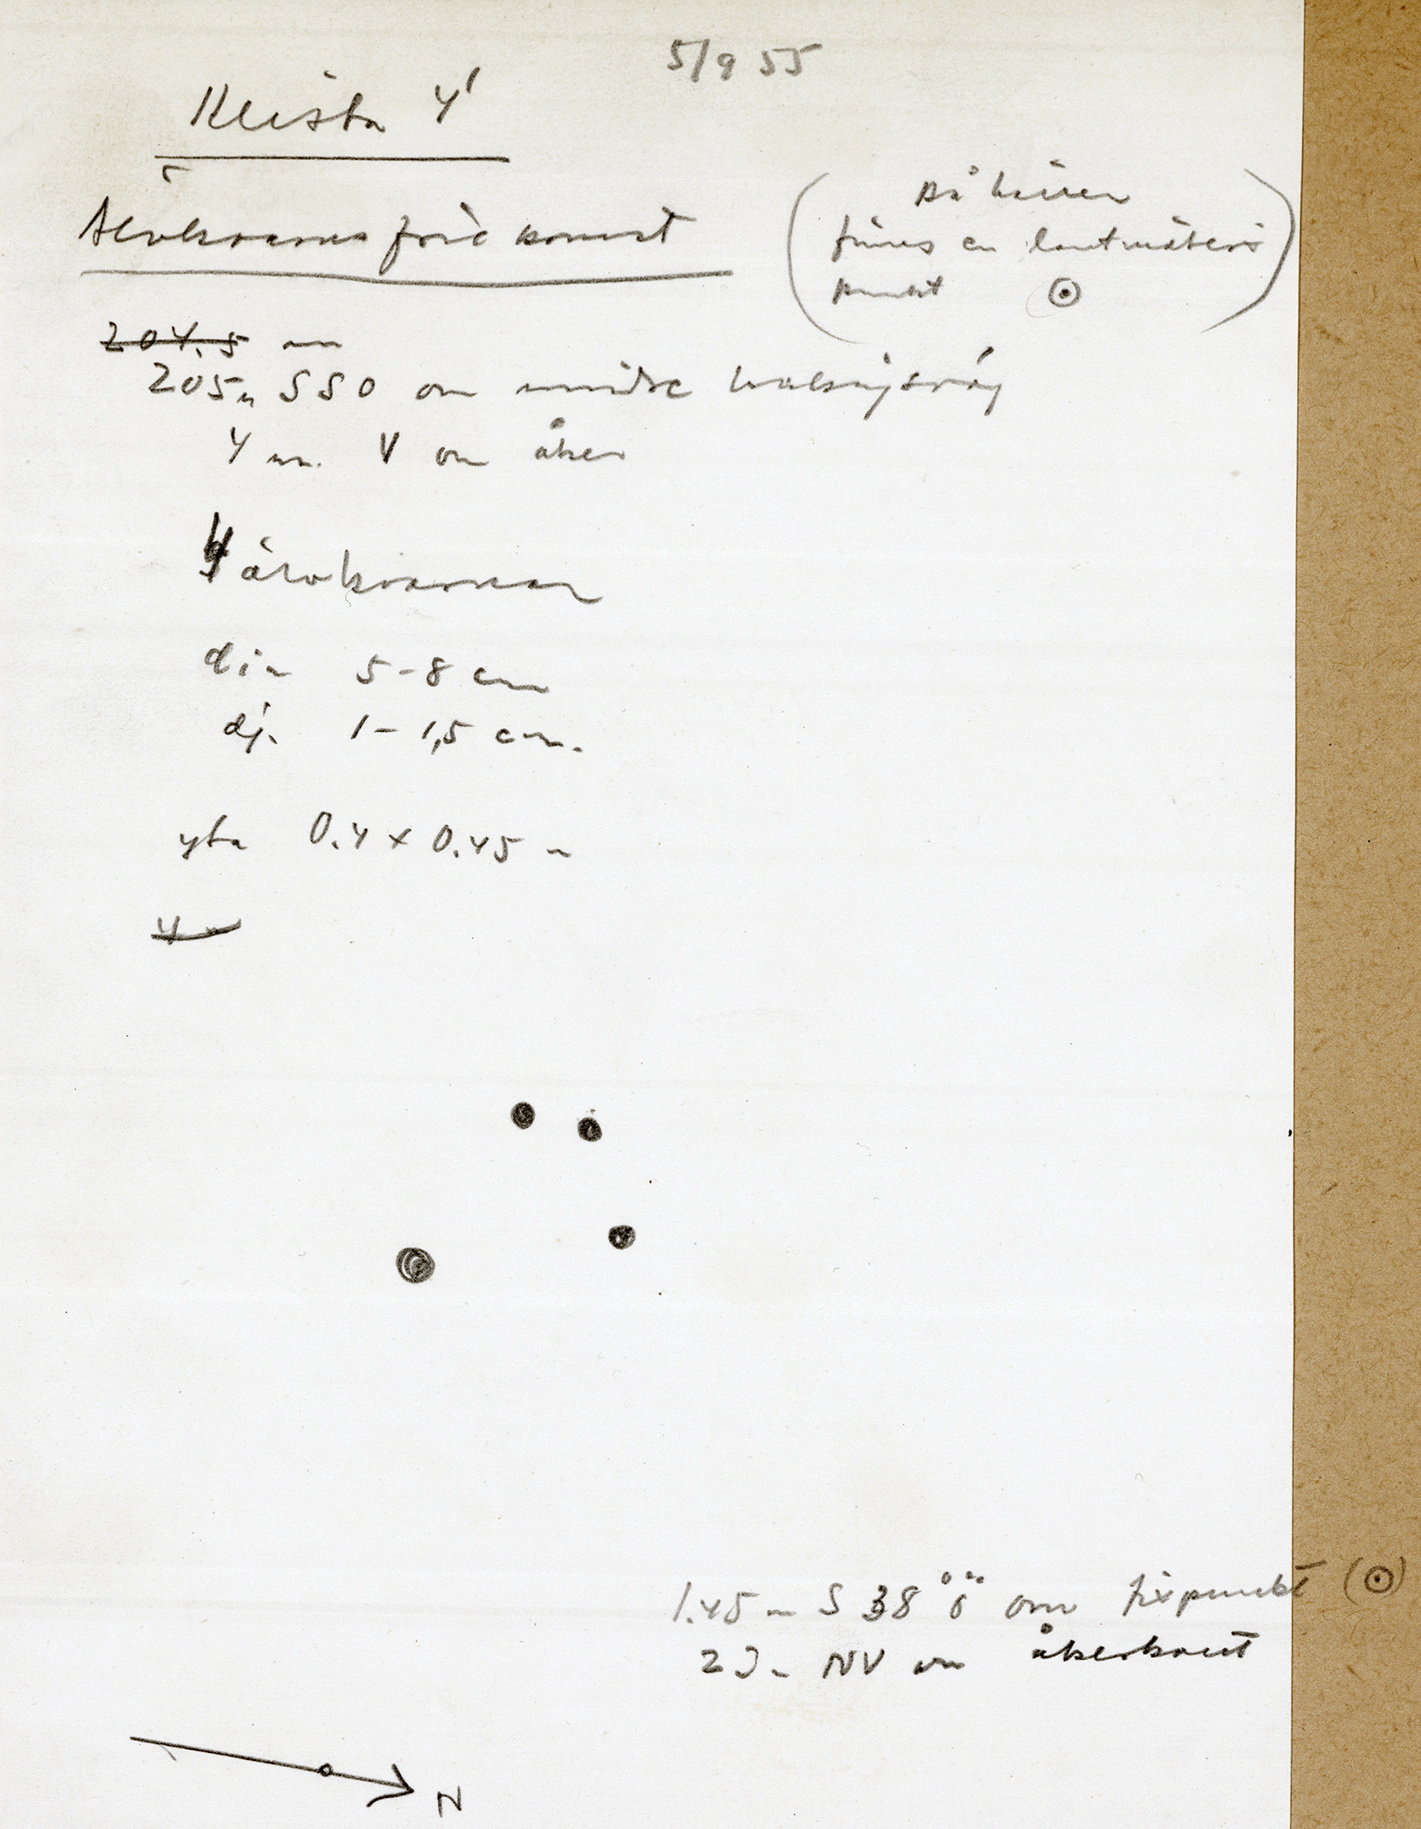 5/9 55
Klista 4'
Älvkvarnsförekomst
(på hällen
finnes en lantmäteri
punkt ⊙)
204.5 m
205 m SSO om mindre
4 m. V om åker
4 älvkvarnar
dia 5-8 cm
dj. 1-1,5 cm.
yta 0.4 x 0.45 m
4 m
1.45 m S 38° ö om fixpunkt (⊙)
NV om åkerkant
N